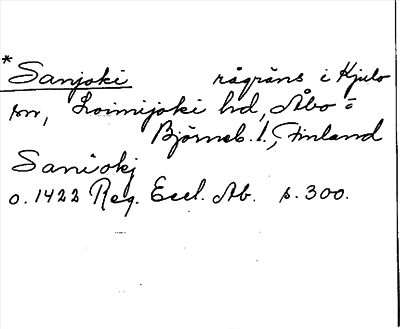 *Sanjoki rågräns i Kjulo
sn, Loimijoki hd, Åbo o
Björneb. l., Finland
Saniokj
o. 1422 Reg. Eccl. Ab. s. 300.